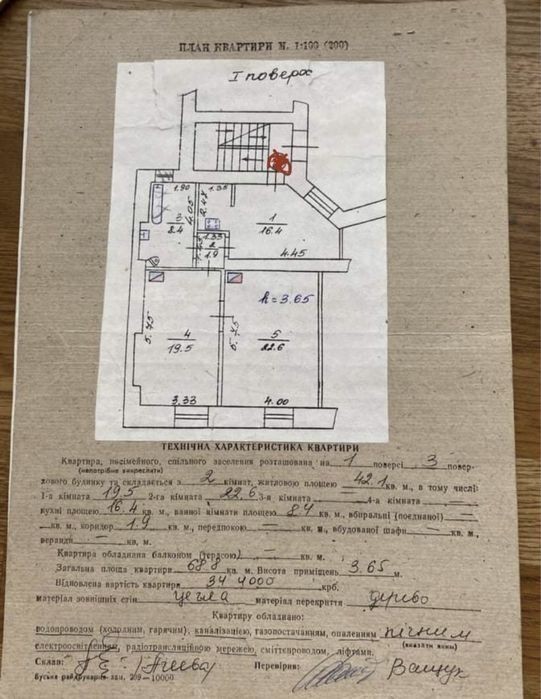 ПЛАН КВАРТИРИ N. 1:100 (200)
І поверх
1.90
1.35
4.05
2.47
3
8.4
1
16.4
1.33
2
1.9
4.45
h = 3.65
5.75
4
19.5
5.75
5
22.6
3.33
4.00
ТЕХНІЧНА ХАРАКТЕРИСТИКА КВАРТИРИ
Квартира, посімейного, спільного заселення розташована на 1 поверсі 3 повер-
(непотрібне викреслити)
хового будинку та складається з 2 кімнат, житловою площею 42.1 кв. м., в тому числі:
1-а кімната 19.5 2-га кімната 22.6 3-я кімната — 4-а кімната —
кухні площею 16.4 кв. м., ванної кімнати площею 8.4 кв. м., вбиральні (поєднаної) —
кв. м., коридор 1.9 кв. м., передпокою — кв. м., вбудованої шафи — кв. м.,
веранди — кв. м.
Квартира обладнана балконом (терсою) — кв. м.
Загальна площа квартири 68.8 кв. м. Висота приміщень 3.65 м.
Відновлена вартість квартири 34 4000 крб.
матеріал зовнішніх стін цегла матеріал перекриття дерево
Квартиру обладнано:
водопроводом (холодним, гарячим), каналізацією, газопостачанням, опаленням пічним
(вказати яким)
електроосвітленням, радіотрансляційною мережею, сміттєпроводом, ліфтами.
Склав: Перевірив: Ващук
Буська райдрукарня зам. 209—10000